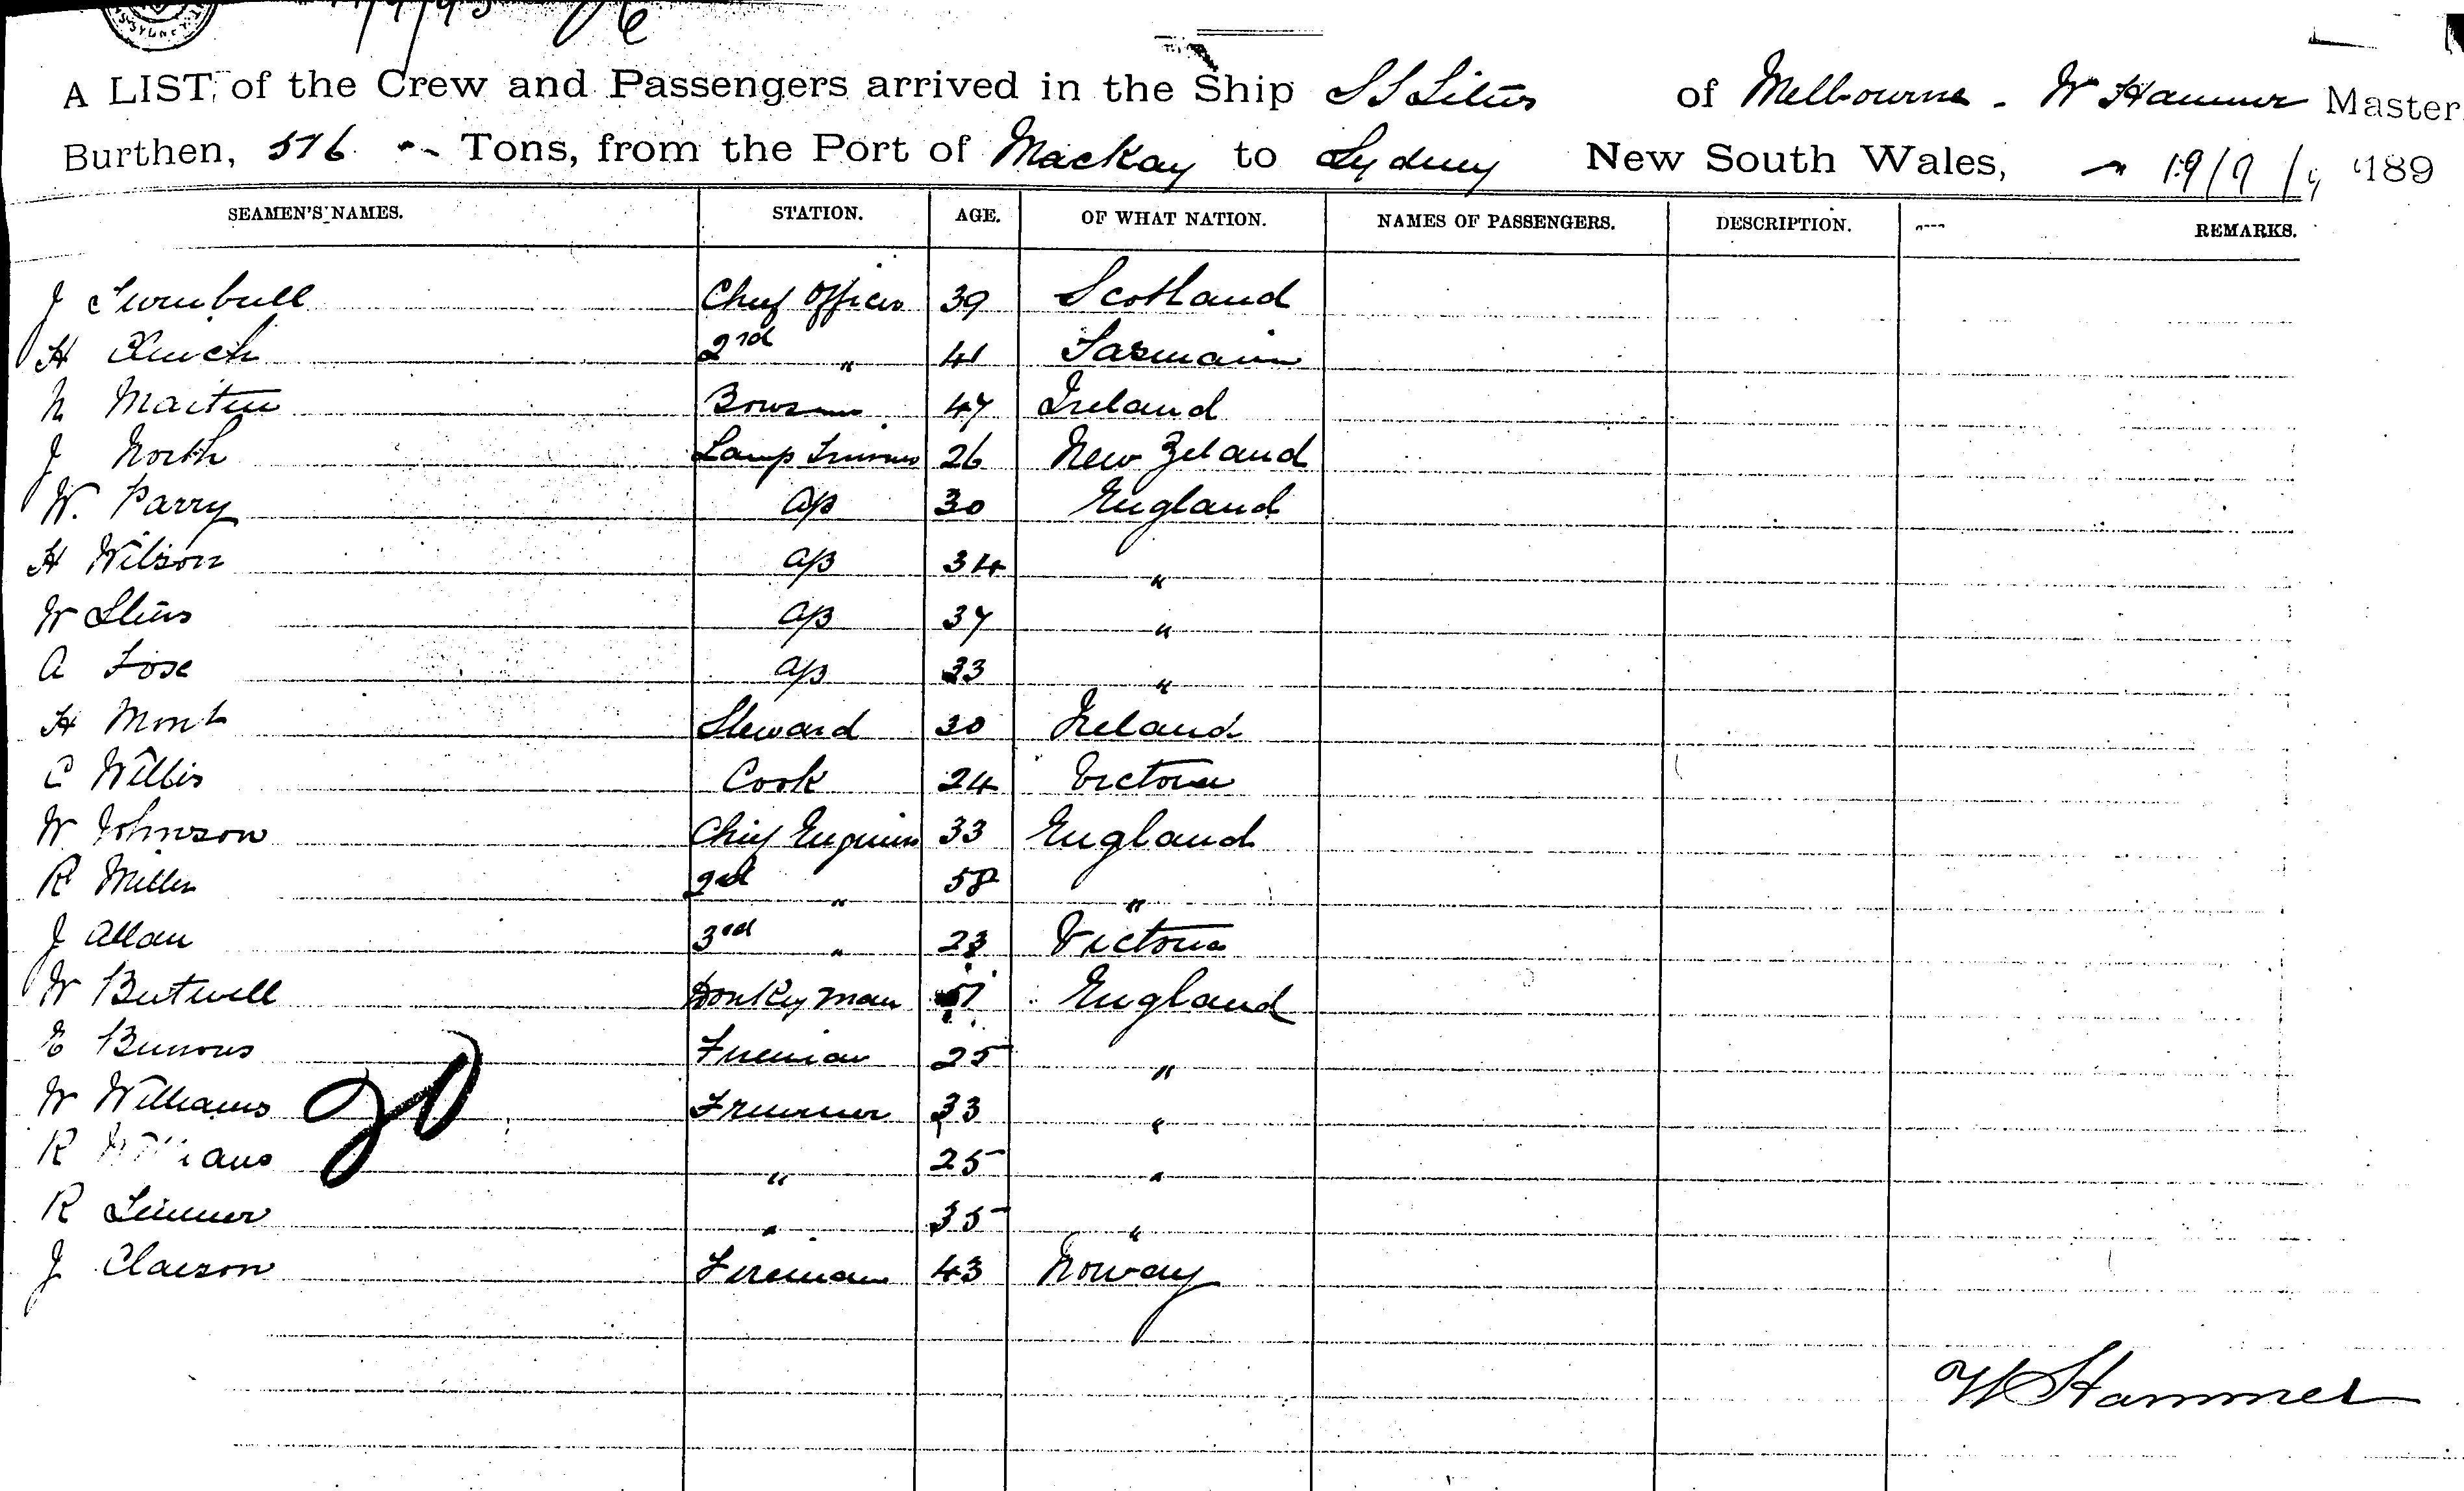 SYDNEY
A LIST, of the Crew and Passengers arrived in the Ship SS of Melbourne - W Hammer Master
Burthen, 576 Tons, from the Port of Mackay to Sydney New South Wales, 19/9/ 189
SEAMEN'S NAMES. STATION. AGE. OF WHAT NATION. NAMES OF PASSENGERS. DESCRIPTION. REMARKS.
J Turnbull Chief Officer 39 Scotland
H 2nd " 41 Tasmania
Martin 47 Ireland
J North Lamp Trimmer 26 New Zeland
W. Parry AB 30 England
H Wilson AB 34 "
W AB 37 "
A AB 33 "
H Mont Steward 30 Ireland
C Willis Cook 24 Victoria
W Johnson Chief Engineer 33 England
R Miller 2nd " 58 "
J Allan 3rd " 23 Victoria
W Butwell Donkeyman England
E Fireman 25 "
W Williams Fireman 33 "
R " 25 "
R " 35 "
J Claeson Fireman 43 Norway
20
W Hammer